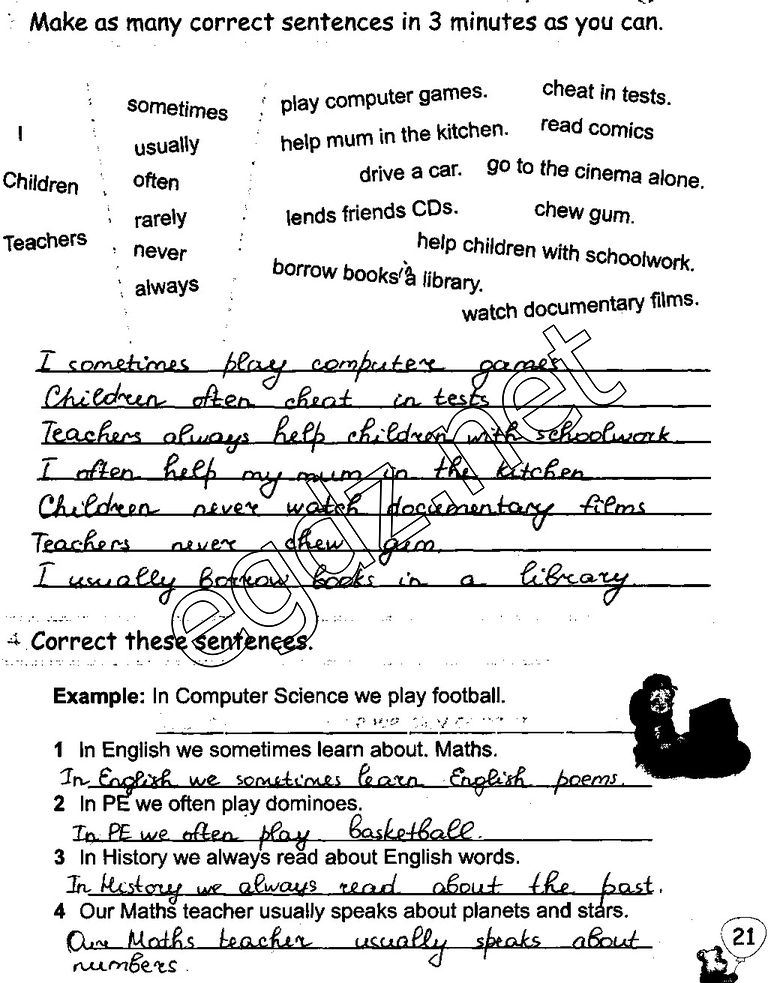 Make as many correct sentences in 3 minutes as you can.
I
Children
Teachers
sometimes
usually
often
rarely
never
always
play computer games.
cheat in tests.
help mum in the kitchen.
read comics
drive a car.
go to the cinema alone.
lends friends CDs.
chew gum.
help children with schoolwork.
borrow books in a library.
watch documentary films.
I sometimes play computere games
Children often cheat in tests
Teachers always help children with schoolwork
I often help my mum in the kitchen
Children never watch documentary films
Teachers never chew gum.
I usually borrow books in a library.
egdz.net
4 Correct these sentences.
Example: In Computer Science we play football.
1 In English we sometimes learn about. Maths.
In English we sometimes learn English poems.
2 In PE we often play dominoes.
In PE we often play basketball.
3 In History we always read about English words.
In History we always read about the past.
4 Our Maths teacher usually speaks about planets and stars.
Our Maths teacher usually speaks about
numbers.
21